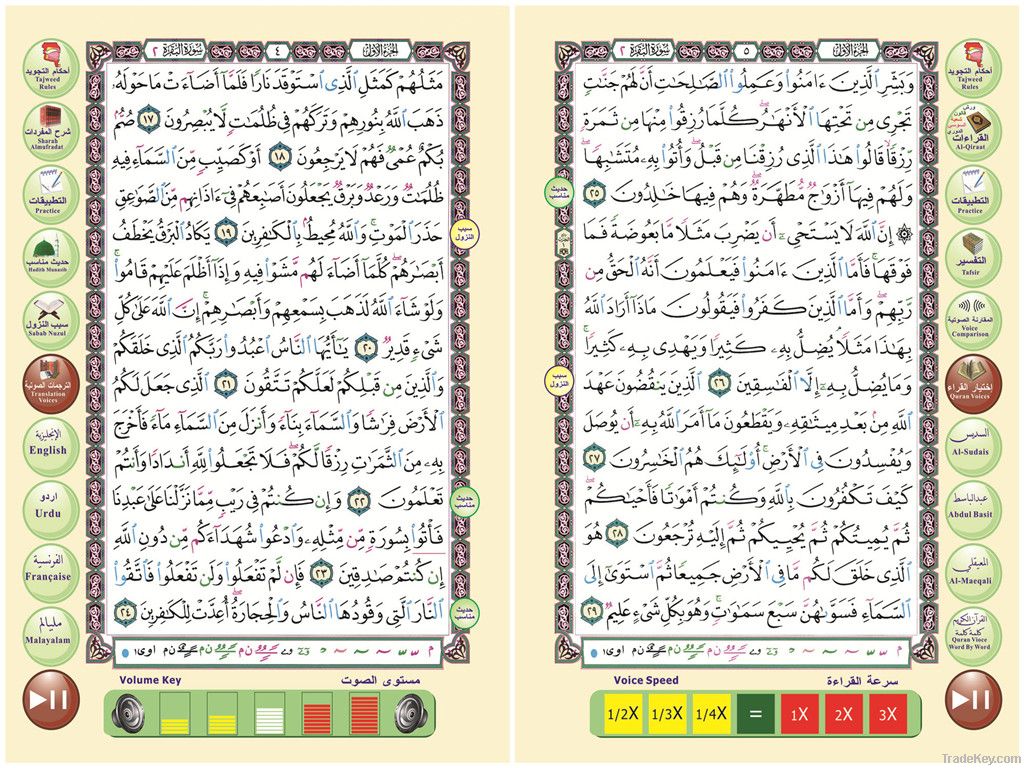 الجزء الأول
٤
سورة البقرة ٢
مَثَلُهُمْ كَمَثَلِ الَّذِى اسْتَوْقَدَ نَارًا فَلَمَّا أَضَاءَتْ مَا حَوْلَهُ
ذَهَبَ اللَّهُ بِنُورِهِمْ وَتَرَكَهُمْ فِى ظُلُمَاتٍ لَّا يُبْصِرُونَ ١٧ صُمٌّ
بُكْمٌ عُمْىٌ فَهُمْ لَا يَرْجِعُونَ ١٨ أَوْ كَصَيِّبٍ مِّنَ السَّمَاءِ فِيهِ
ظُلُمَاتٌ وَرَعْدٌ وَبَرْقٌ يَجْعَلُونَ أَصَابِعَهُمْ فِى ءَاذَانِهِم مِّنَ الصَّوَاعِقِ
حَذَرَ الْمَوْتِ وَاللَّهُ مُحِيطٌ بِالْكَافِرِينَ ١٩ يَكَادُ الْبَرْقُ يَخْطَفُ
أَبْصَارَهُمْ كُلَّمَا أَضَاءَ لَهُم مَّشَوْا فِيهِ وَإِذَا أَظْلَمَ عَلَيْهِمْ قَامُوا
وَلَوْ شَاءَ اللَّهُ لَذَهَبَ بِسَمْعِهِمْ وَأَبْصَارِهِمْ إِنَّ اللَّهَ عَلَىٰ كُلِّ
شَىْءٍ قَدِيرٌ ٢٠ يَا أَيُّهَا النَّاسُ اعْبُدُوا رَبَّكُمُ الَّذِى خَلَقَكُمْ
وَالَّذِينَ مِن قَبْلِكُمْ لَعَلَّكُمْ تَتَّقُونَ ٢١ الَّذِى جَعَلَ لَكُمُ
الْأَرْضَ فِرَاشًا وَالسَّمَاءَ بِنَاءً وَأَنزَلَ مِنَ السَّمَاءِ مَاءً فَأَخْرَجَ
بِهِ مِنَ الثَّمَرَاتِ رِزْقًا لَّكُمْ فَلَا تَجْعَلُوا لِلَّهِ أَندَادًا وَأَنتُمْ
تَعْلَمُونَ ٢٢ وَإِن كُنتُمْ فِى رَيْبٍ مِّمَّا نَزَّلْنَا عَلَىٰ عَبْدِنَا
فَأْتُوا بِسُورَةٍ مِّن مِّثْلِهِ وَادْعُوا شُهَدَاءَكُم مِّن دُونِ اللَّهِ
إِن كُنتُمْ صَادِقِينَ ٢٣ فَإِن لَّمْ تَفْعَلُوا وَلَن تَفْعَلُوا فَاتَّقُوا
النَّارَ الَّتِى وَقُودُهَا النَّاسُ وَالْحِجَارَةُ أُعِدَّتْ لِلْكَافِرِينَ ٢٤
سبب النزول
حديث مناسب
حديث مناسب
أحكام التجويد
Tajweed Rules
شرح المفردات
Sharah Almufradat
التطبيقات
Practice
حديث مناسب
Hadith Munasib
سبب النزول
Sabab Nuzul
الترجمات الصوتية
Translation Voices
الإنجليزية
English
اردو
Urdu
الفرنسية
Française
مليالم
Malayalam
Volume Key
مستوى الصوت
الجزء الأول
٥
سورة البقرة ٢
وَبَشِّرِ الَّذِينَ ءَامَنُوا وَعَمِلُوا الصَّالِحَاتِ أَنَّ لَهُمْ جَنَّاتٍ
تَجْرِى مِن تَحْتِهَا الْأَنْهَارُ كُلَّمَا رُزِقُوا مِنْهَا مِن ثَمَرَةٍ
رِّزْقًا قَالُوا هَٰذَا الَّذِى رُزِقْنَا مِن قَبْلُ وَأُتُوا بِهِ مُتَشَابِهًا
وَلَهُمْ فِيهَا أَزْوَاجٌ مُّطَهَّرَةٌ وَهُمْ فِيهَا خَالِدُونَ ٢٥
۞ إِنَّ اللَّهَ لَا يَسْتَحْىِ أَن يَضْرِبَ مَثَلًا مَّا بَعُوضَةً فَمَا
فَوْقَهَا فَأَمَّا الَّذِينَ ءَامَنُوا فَيَعْلَمُونَ أَنَّهُ الْحَقُّ مِن
رَّبِّهِمْ وَأَمَّا الَّذِينَ كَفَرُوا فَيَقُولُونَ مَاذَا أَرَادَ اللَّهُ
بِهَٰذَا مَثَلًا يُضِلُّ بِهِ كَثِيرًا وَيَهْدِى بِهِ كَثِيرًا
وَمَا يُضِلُّ بِهِ إِلَّا الْفَاسِقِينَ ٢٦ الَّذِينَ يَنقُضُونَ عَهْدَ
اللَّهِ مِن بَعْدِ مِيثَاقِهِ وَيَقْطَعُونَ مَا أَمَرَ اللَّهُ بِهِ أَن يُوصَلَ
وَيُفْسِدُونَ فِى الْأَرْضِ أُولَٰئِكَ هُمُ الْخَاسِرُونَ ٢٧
كَيْفَ تَكْفُرُونَ بِاللَّهِ وَكُنتُمْ أَمْوَاتًا فَأَحْيَاكُمْ
ثُمَّ يُمِيتُكُمْ ثُمَّ يُحْيِيكُمْ ثُمَّ إِلَيْهِ تُرْجَعُونَ ٢٨ هُوَ
الَّذِى خَلَقَ لَكُم مَّا فِى الْأَرْضِ جَمِيعًا ثُمَّ اسْتَوَىٰ إِلَى
السَّمَاءِ فَسَوَّاهُنَّ سَبْعَ سَمَاوَاتٍ وَهُوَ بِكُلِّ شَىْءٍ عَلِيمٌ ٢٩
حديث مناسب
سبب النزول
أحكام التجويد
Tajweed Rules
ورش
قالون
شعبة
السوسي
الدوري
القراءات
Al-Qiraat
التطبيقات
Practice
التفسير
Tafsir
المقارنة الصوتية
Voice Comparison
اختيار القراء
Quran Voices
السديس
Al-Sudais
عبدالباسط
Abdul Basit
المعيقلي
Al-Maeqali
القرآن الكريم كلمة كلمة
Quran Vioce Word By Word
Voice Speed
سرعة القراءة
1/2X 1/3X 1/4X = 1X 2X 3X
TradeKey.com